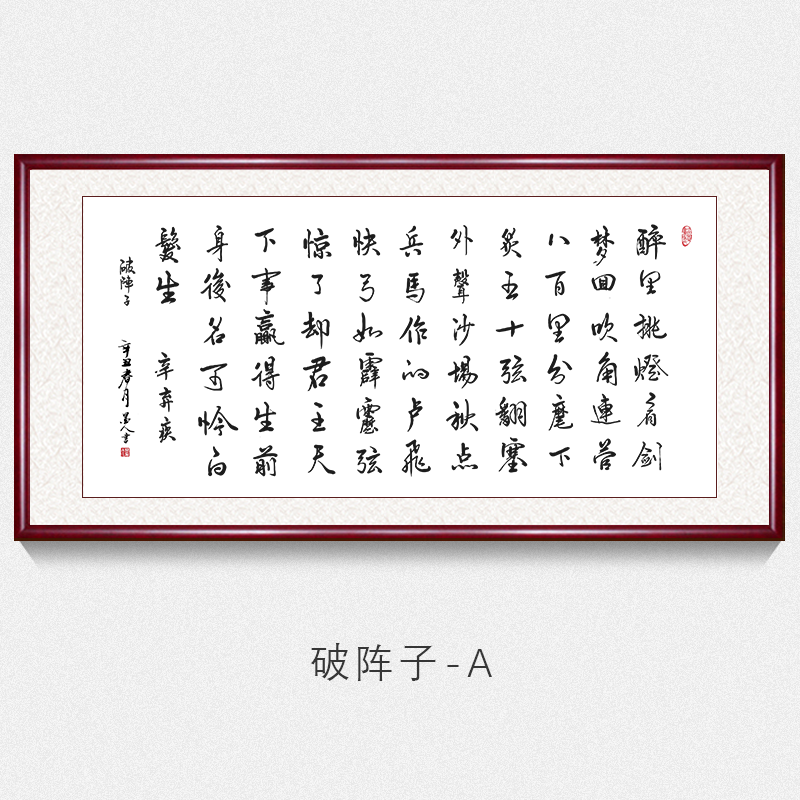 醉里挑燈看剑
梦回吹角連营
八百里分麾下
炙五十弦翻塞
外聲沙場秋点
兵馬作的卢飛
快弓如霹靂弦
惊了却君王天
下事贏得生前
身後名可怜白
髮生 辛弃疾
破陣子 辛丑春月
破阵子-A